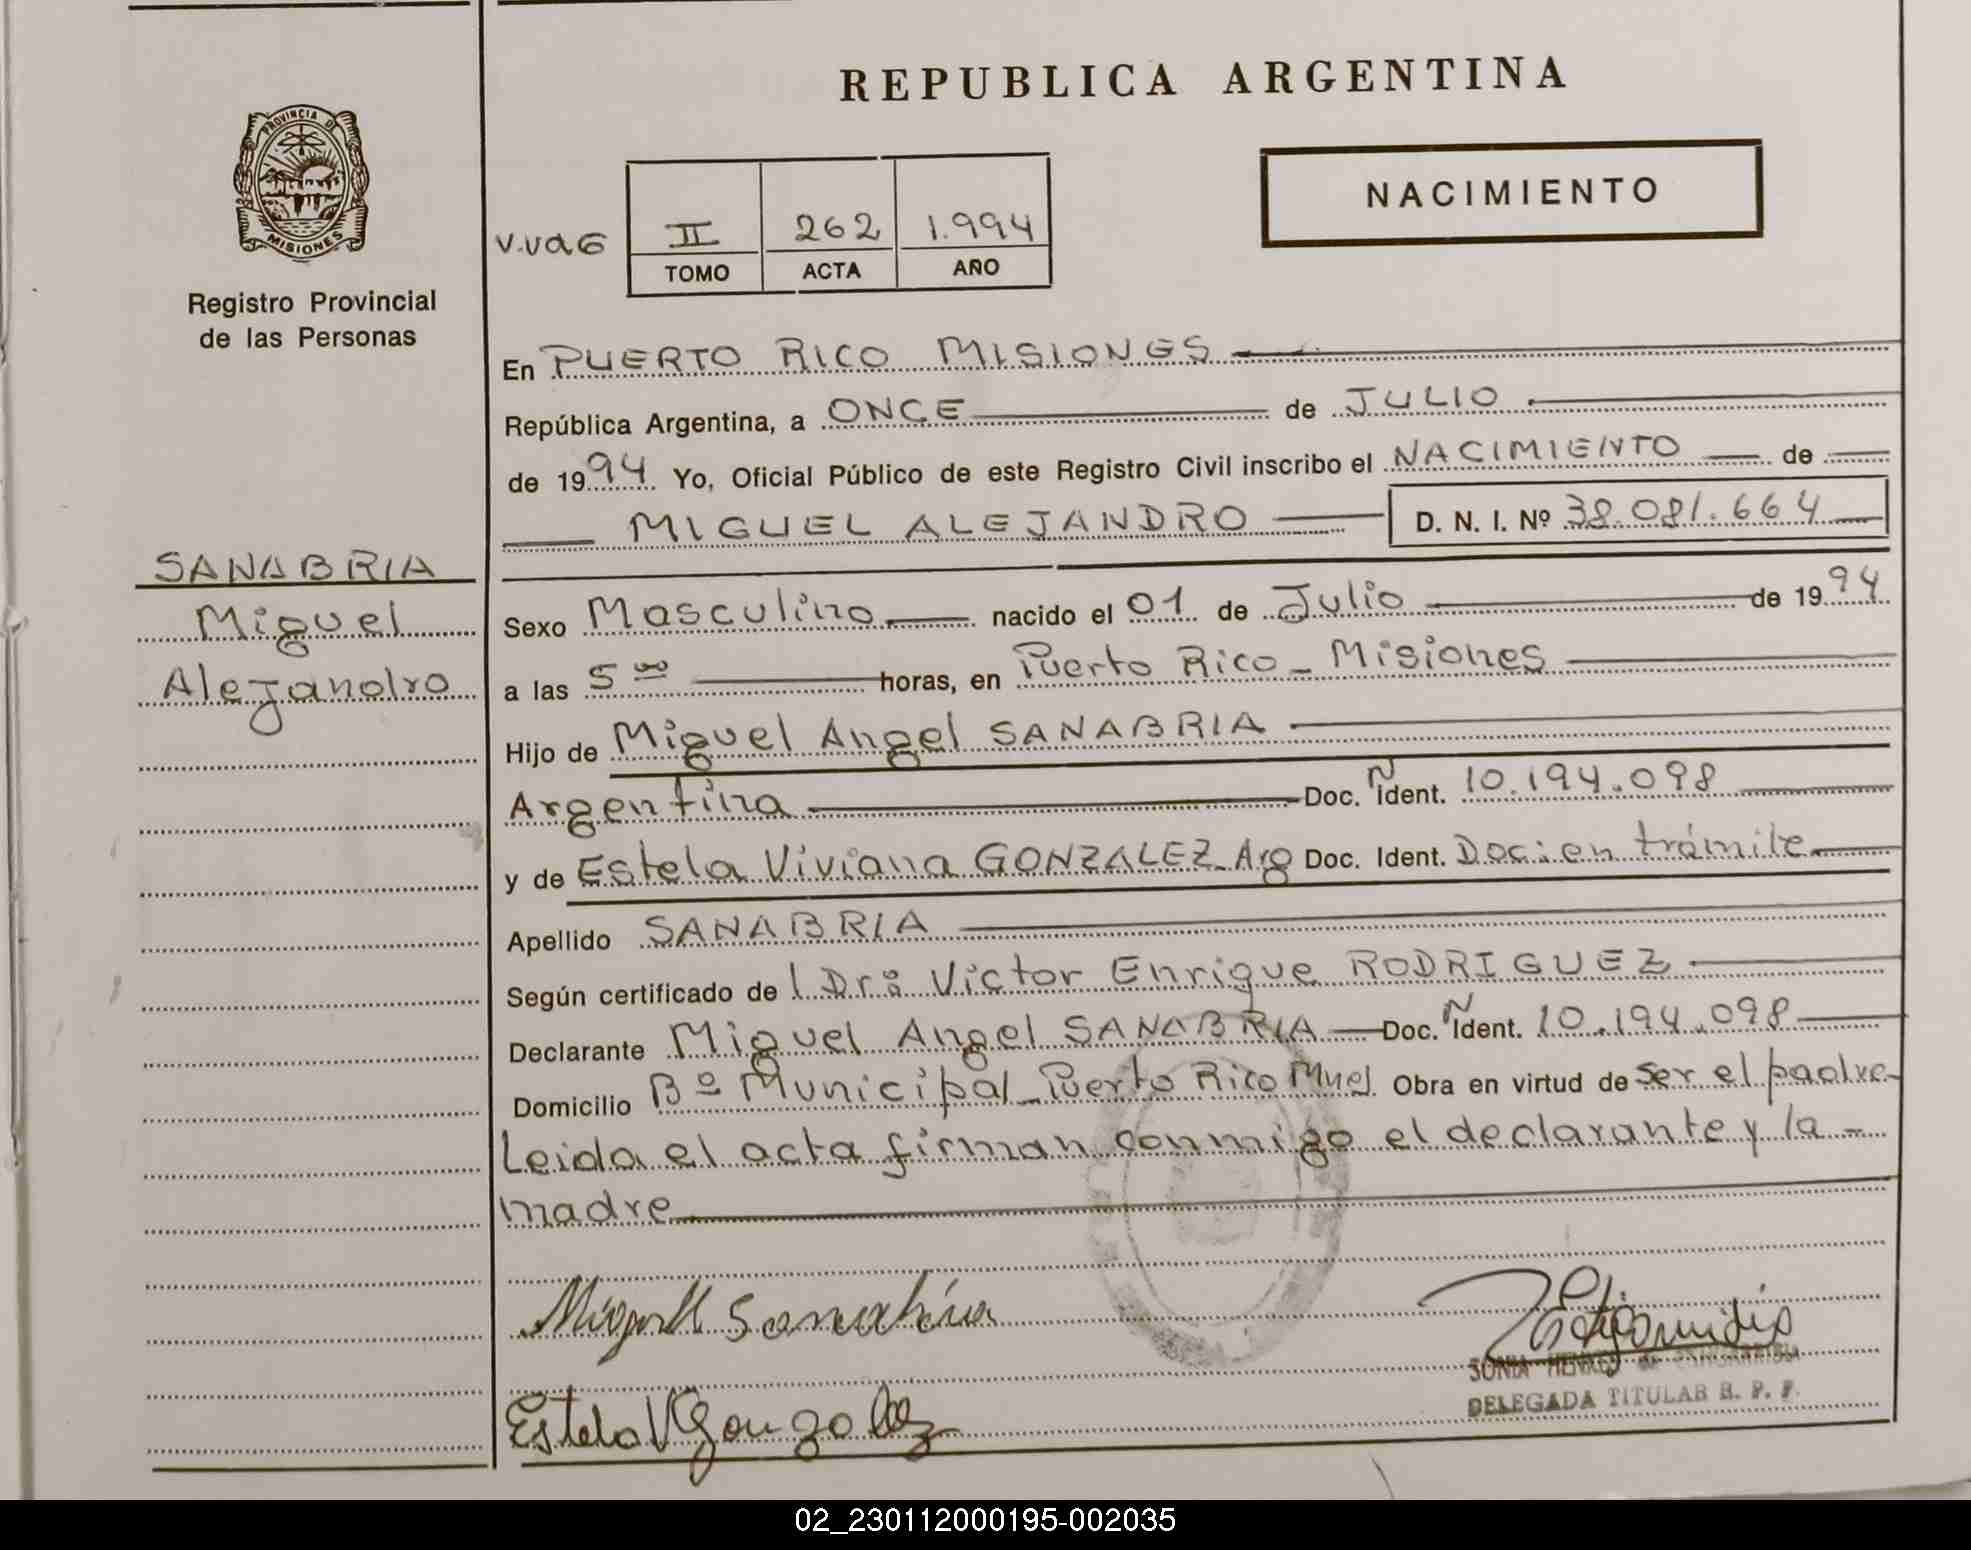 REPUBLICA ARGENTINA
PROVINCIA DE
MISIONES
Registro Provincial
de las Personas
NACIMIENTO
II 262 1.994
TOMO ACTA AÑO
En PUERTO RICO MISIONES
República Argentina, a ONCE de JULIO
de 1994 Yo, Oficial Público de este Registro Civil inscribo el NACIMIENTO de
MIGUEL ALEJANDRO D. N. I. Nº 38.081.664
SANABRIA
Miguel
Alejandro
Sexo Masculino nacido el 01 de Julio de 1994
a las 5 horas, en Puerto Rico - Misiones
Hijo de Miguel Angel SANABRIA
Argentina Doc. Ñ Ident. 10.194.098
y de Estela Viviana GONZALEZ Arg Doc. Ident. Doc: en trámite
Apellido SANABRIA
Según certificado de l Dr: Victor Enrique RODRIGUEZ
Declarante Miguel Angel SANABRIA Doc. Ñ Ident. 10.194.098
Domicilio Bº Municipal - Puerto Rico Mnes Obra en virtud de ser el padre
Leida el acta firman conmigo el declarante y la -
madre
Estela V Gonzalez
SONIA
DELEGADA TITULAR R. P. P.
02_230112000195-002035